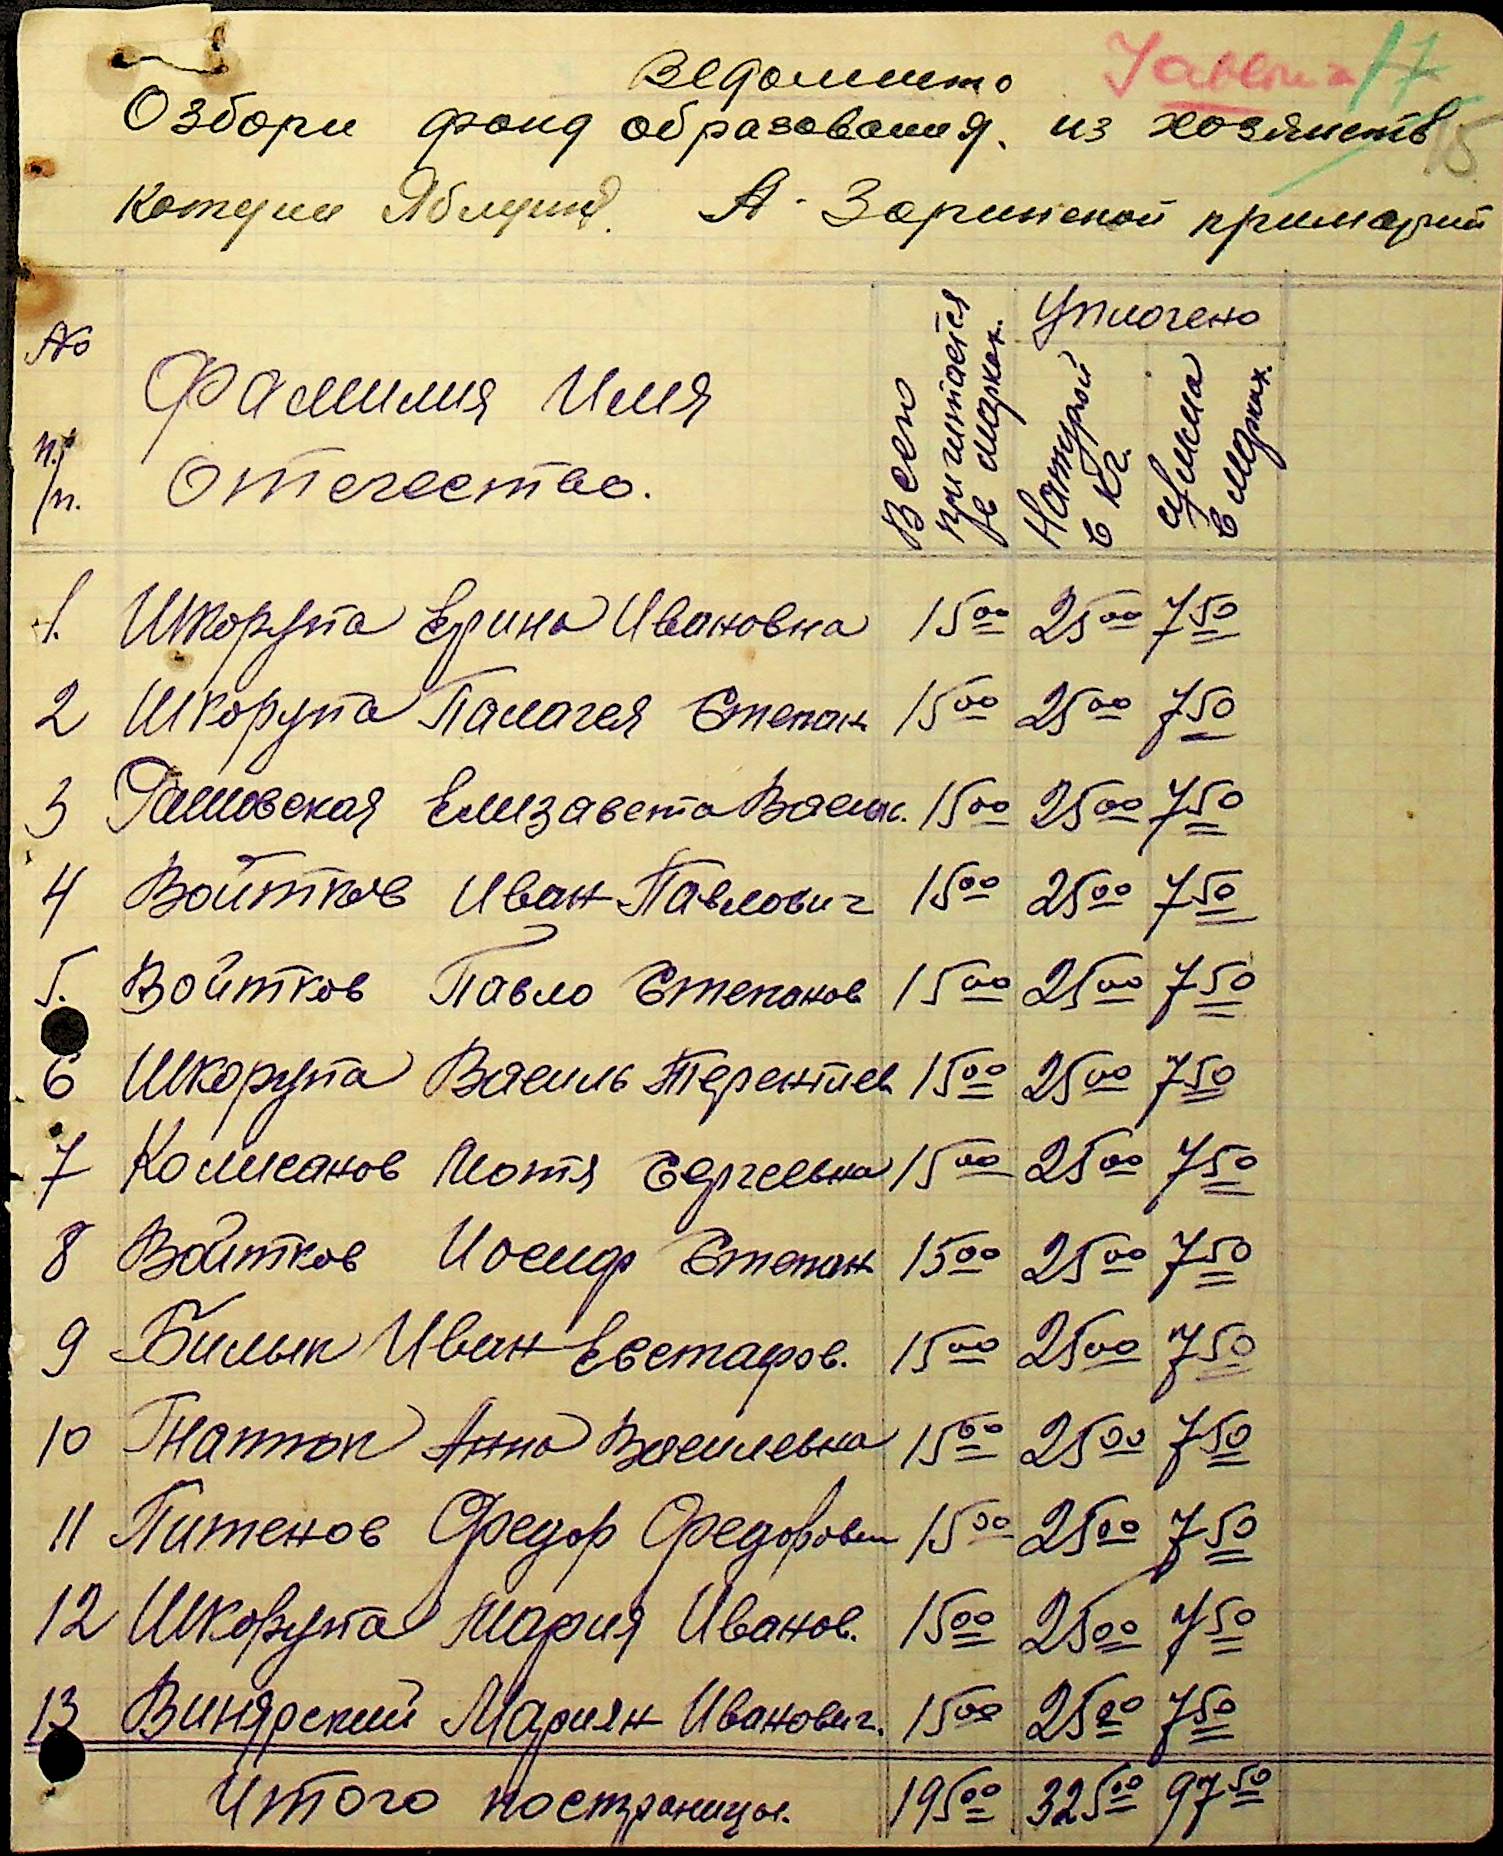 Jablona 17
15
Ведомисто
О збори фонд образования. из хозяиств
Яблуниц. А-Заринской примарий
№ п./п.
Фамилия Имя
Отечество.
Всего
причитается
в марках.
Уплочено
Натурой
в кг.
Сумма
в марках.
1. Шкорупа Ерина Ивановна 15 00 25 00 7 50
2 Шкорупа Палагея Степан 15 00 25 00 7 50
3 Гашовская Елизавета Васил. 15 00 25 00 7 50
4 Войтков Иван Павлович 15 00 25 00 7 50
5. Войтков Павло Степанов 15 00 25 00 7 50
6 Шкорупа Василь Терентиев 15 00 25 00 7 50
7 Колисанов Мотя Сергеевна 15 00 25 00 7 50
8 Войтков Иосиф Степан 15 00 25 00 7 50
9 Билык Иван Евстафов. 15 00 25 00 7 50
10 Гнатюк Анна Василевна 15 00 25 00 7 50
11 Питенов Федор Федорович 15 00 25 00 7 50
12 Шкорупа Мария Иванов. 15 00 25 00 7 50
13 Винярский Мариян Иванович. 15 00 25 00 7 50
Итого постраницы. 195 00 325 00 97 50